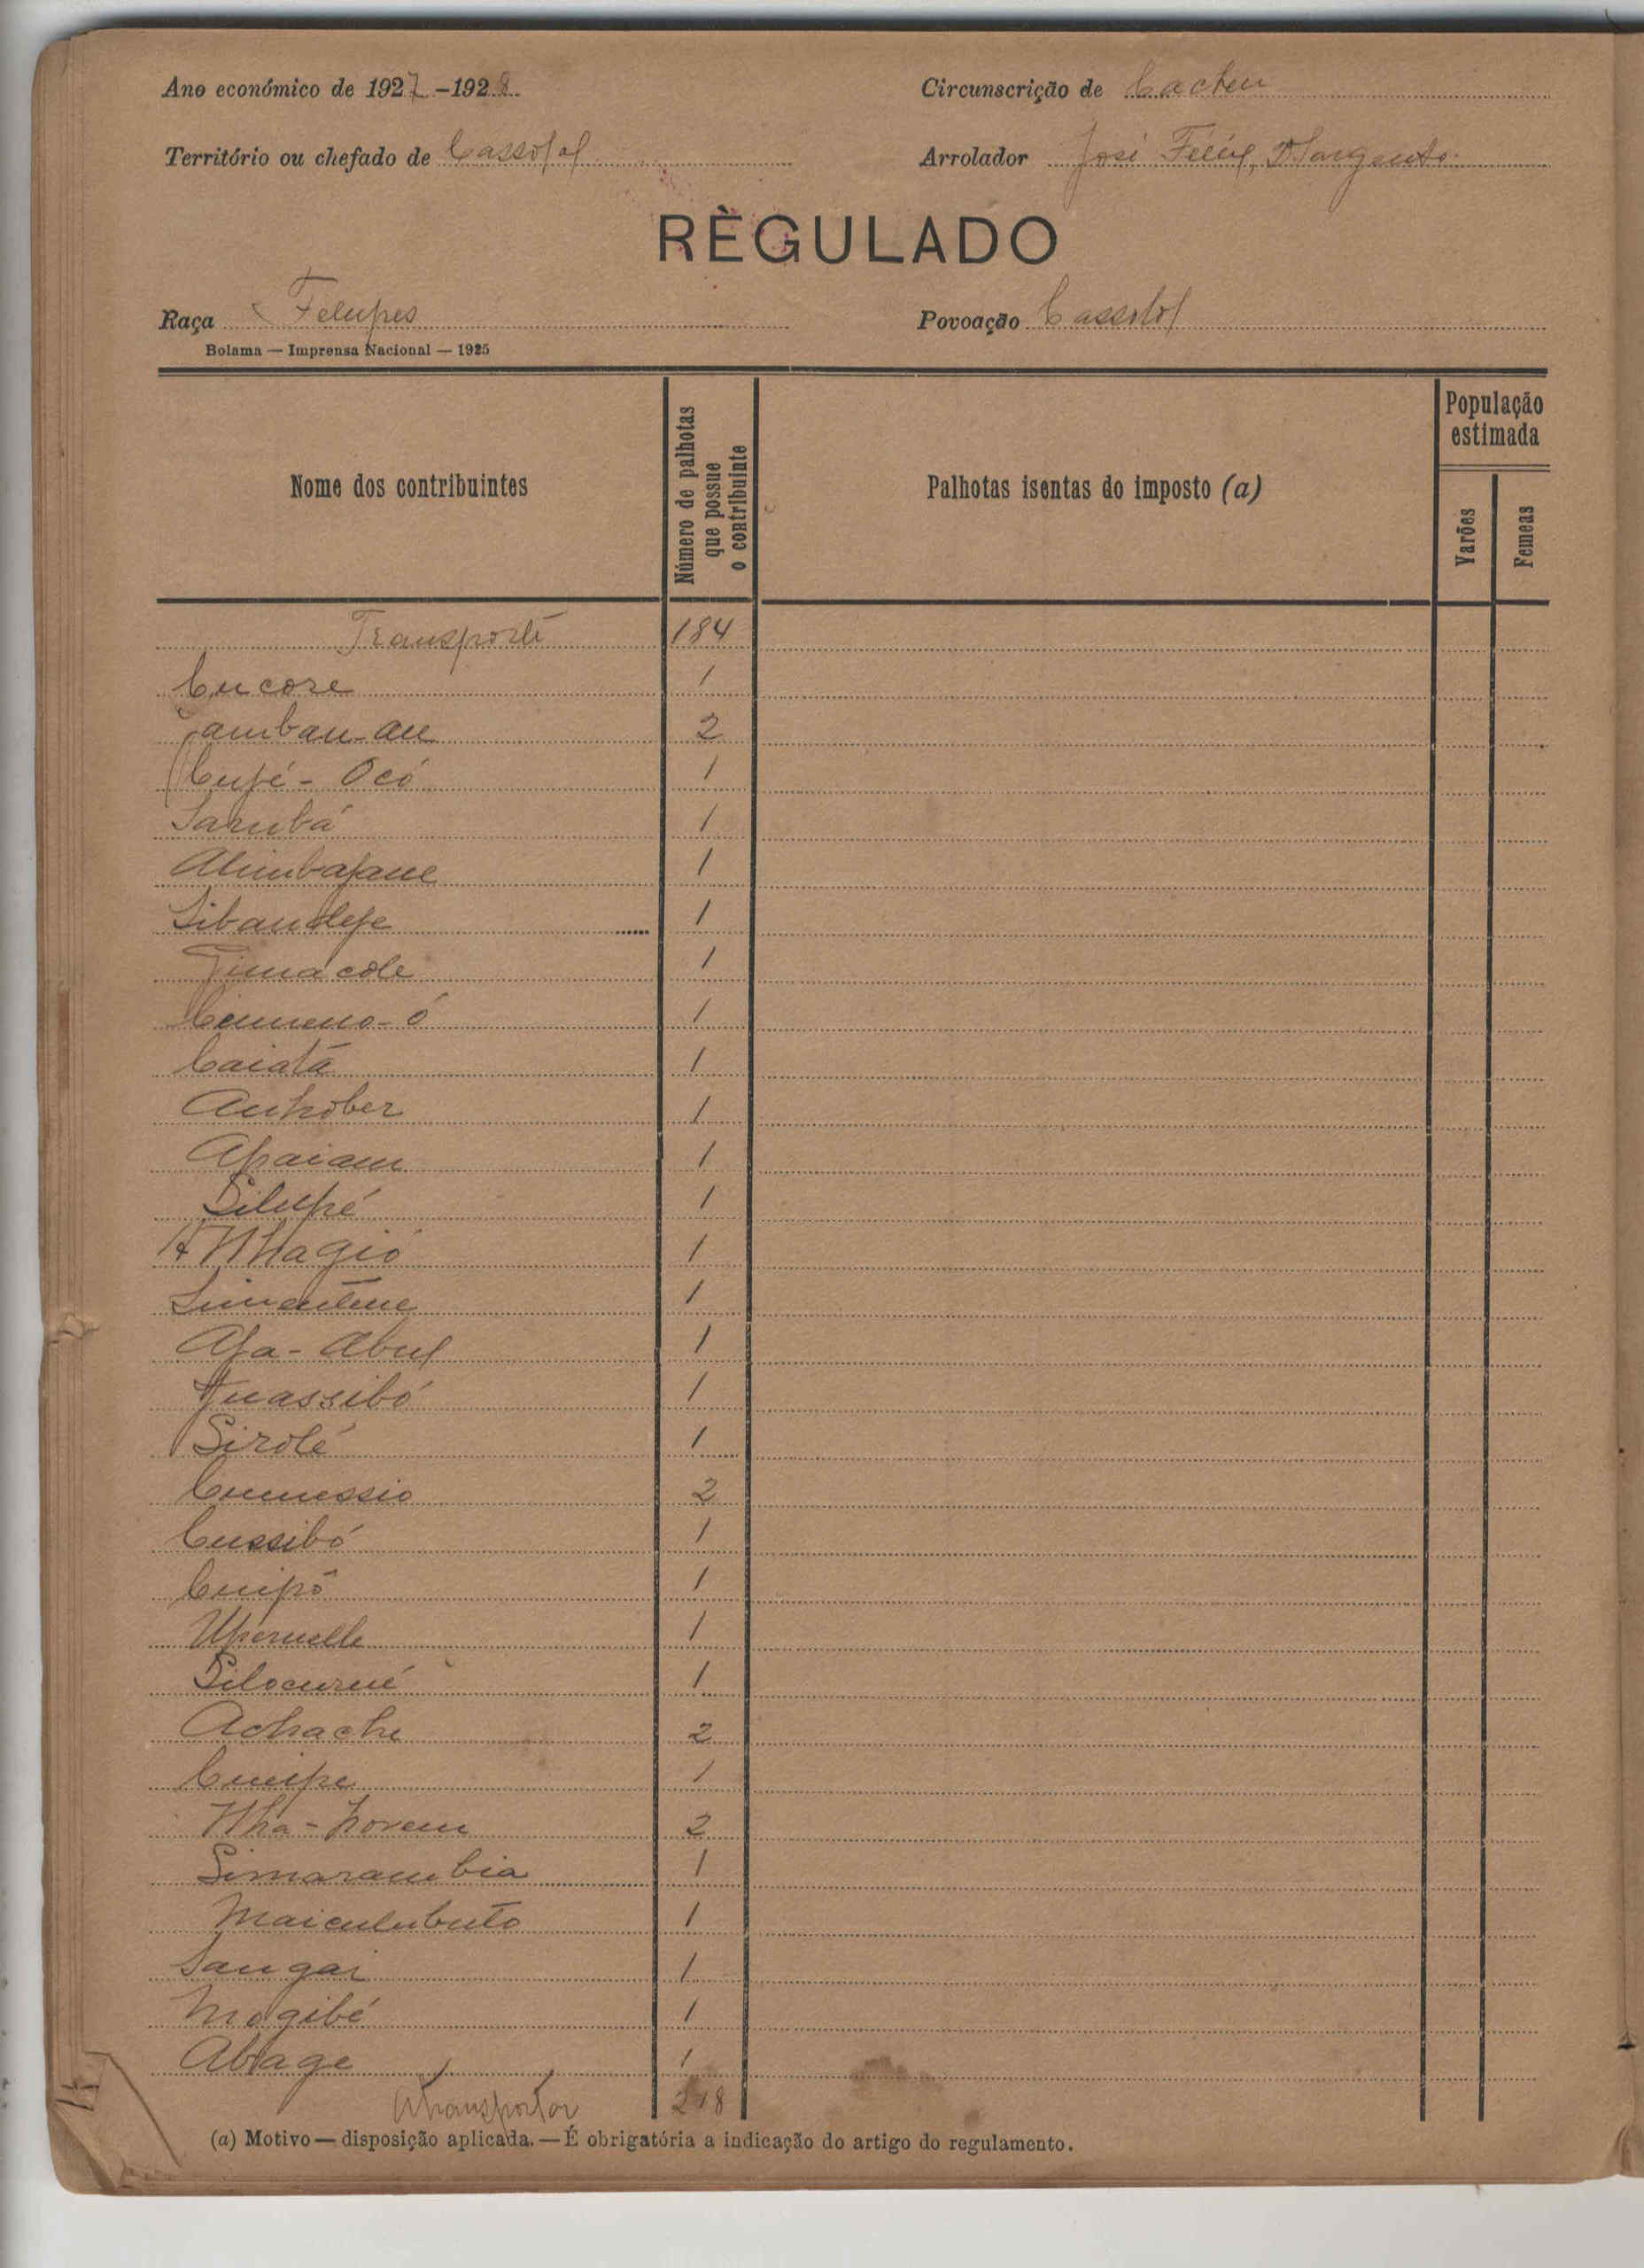 Ano económico de 1927-1928
Circunscrição de Cacheu
Território ou chefado de Cassolol
Arrolador José Felix, Sargento
RÈGULADO
Raça Felupes
Povoação Cassolol
Bolama — Imprensa Nacional — 1925
Nome dos contribuintes
Número de palhotas que possue o contribuinte
Palhotas isentas do imposto (a)
População estimada
Varões
Femeas
Transporte 184
Cucore 1
Jambau-au 2
1
Sarubá 1
Alimbajane 1
1
Jimacole 1
1
Caiatá 1
1
Apaiam 1
Silupé 1
Nhagió 1
1
1
Quassibó 1
Sirolé 1
Cumessio 2
Cussibó 1
Cuipô 1
1
1
Achache 2
1
Nha-horem 2
Simarambia 1
Maiculubuto 1
Sangai 1
Magibé 1
Abiage 1
A transportar 218
(a) Motivo — disposição aplicada. — É obrigatória a indicação do artigo do regulamento.